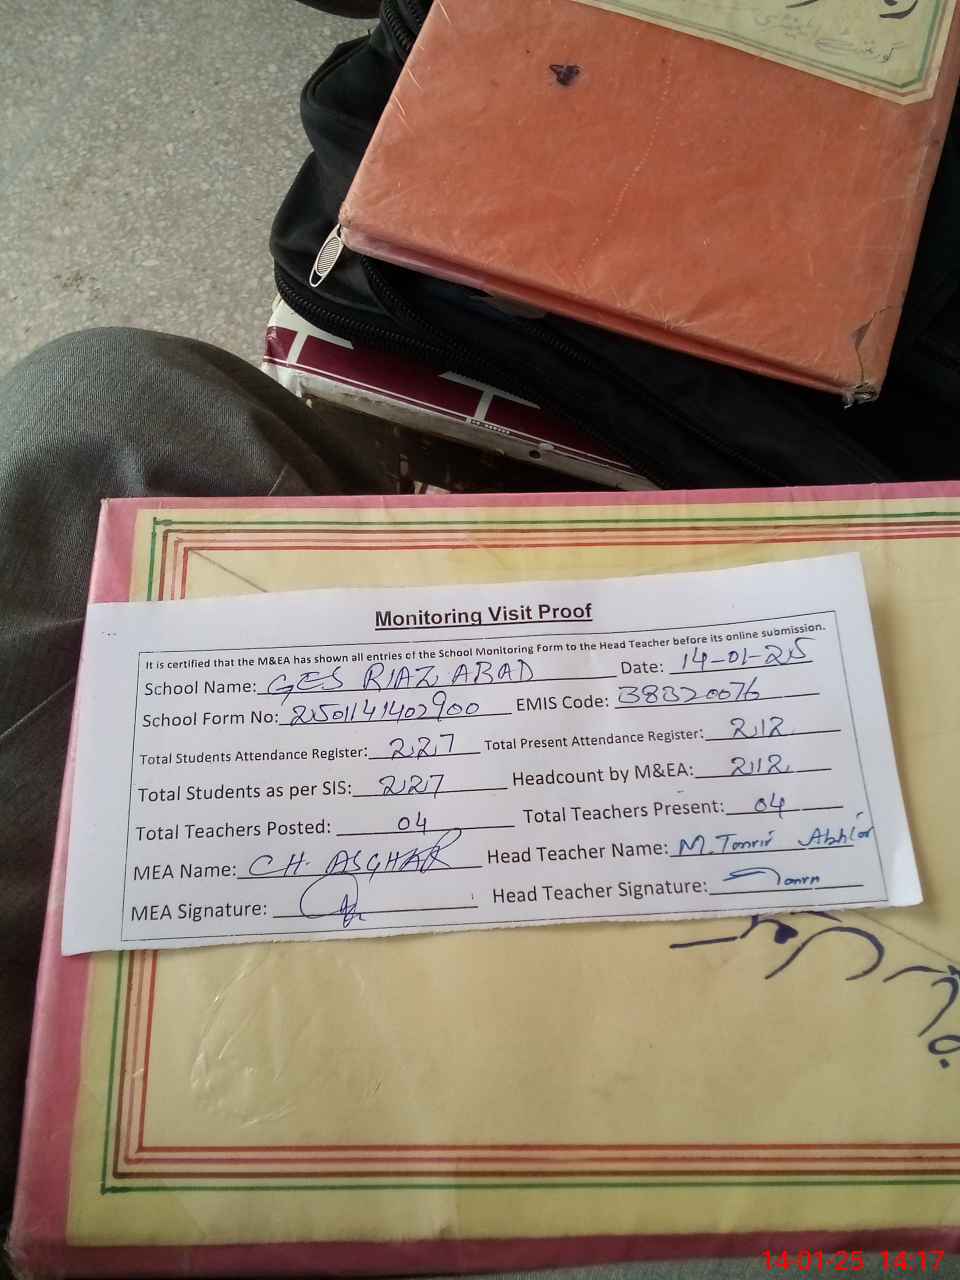 Monitoring Visit Proof
It is certified that the M&EA has shown all entries of the School Monitoring Form to the Head Teacher before its online submission.
School Name: GES RIAZ ABAD Date: 14-01-25
School Form No: 2501141402900 EMIS Code: 38320076
Total Students Attendance Register: 227 Total Present Attendance Register: 212
Total Students as per SIS: 227 Headcount by M&EA: 212
Total Teachers Posted: 04 Total Teachers Present: 04
MEA Name: CH. ASGHAR Head Teacher Name: M. Tanvir
MEA Signature: Head Teacher Signature:
14-01-25 14:17